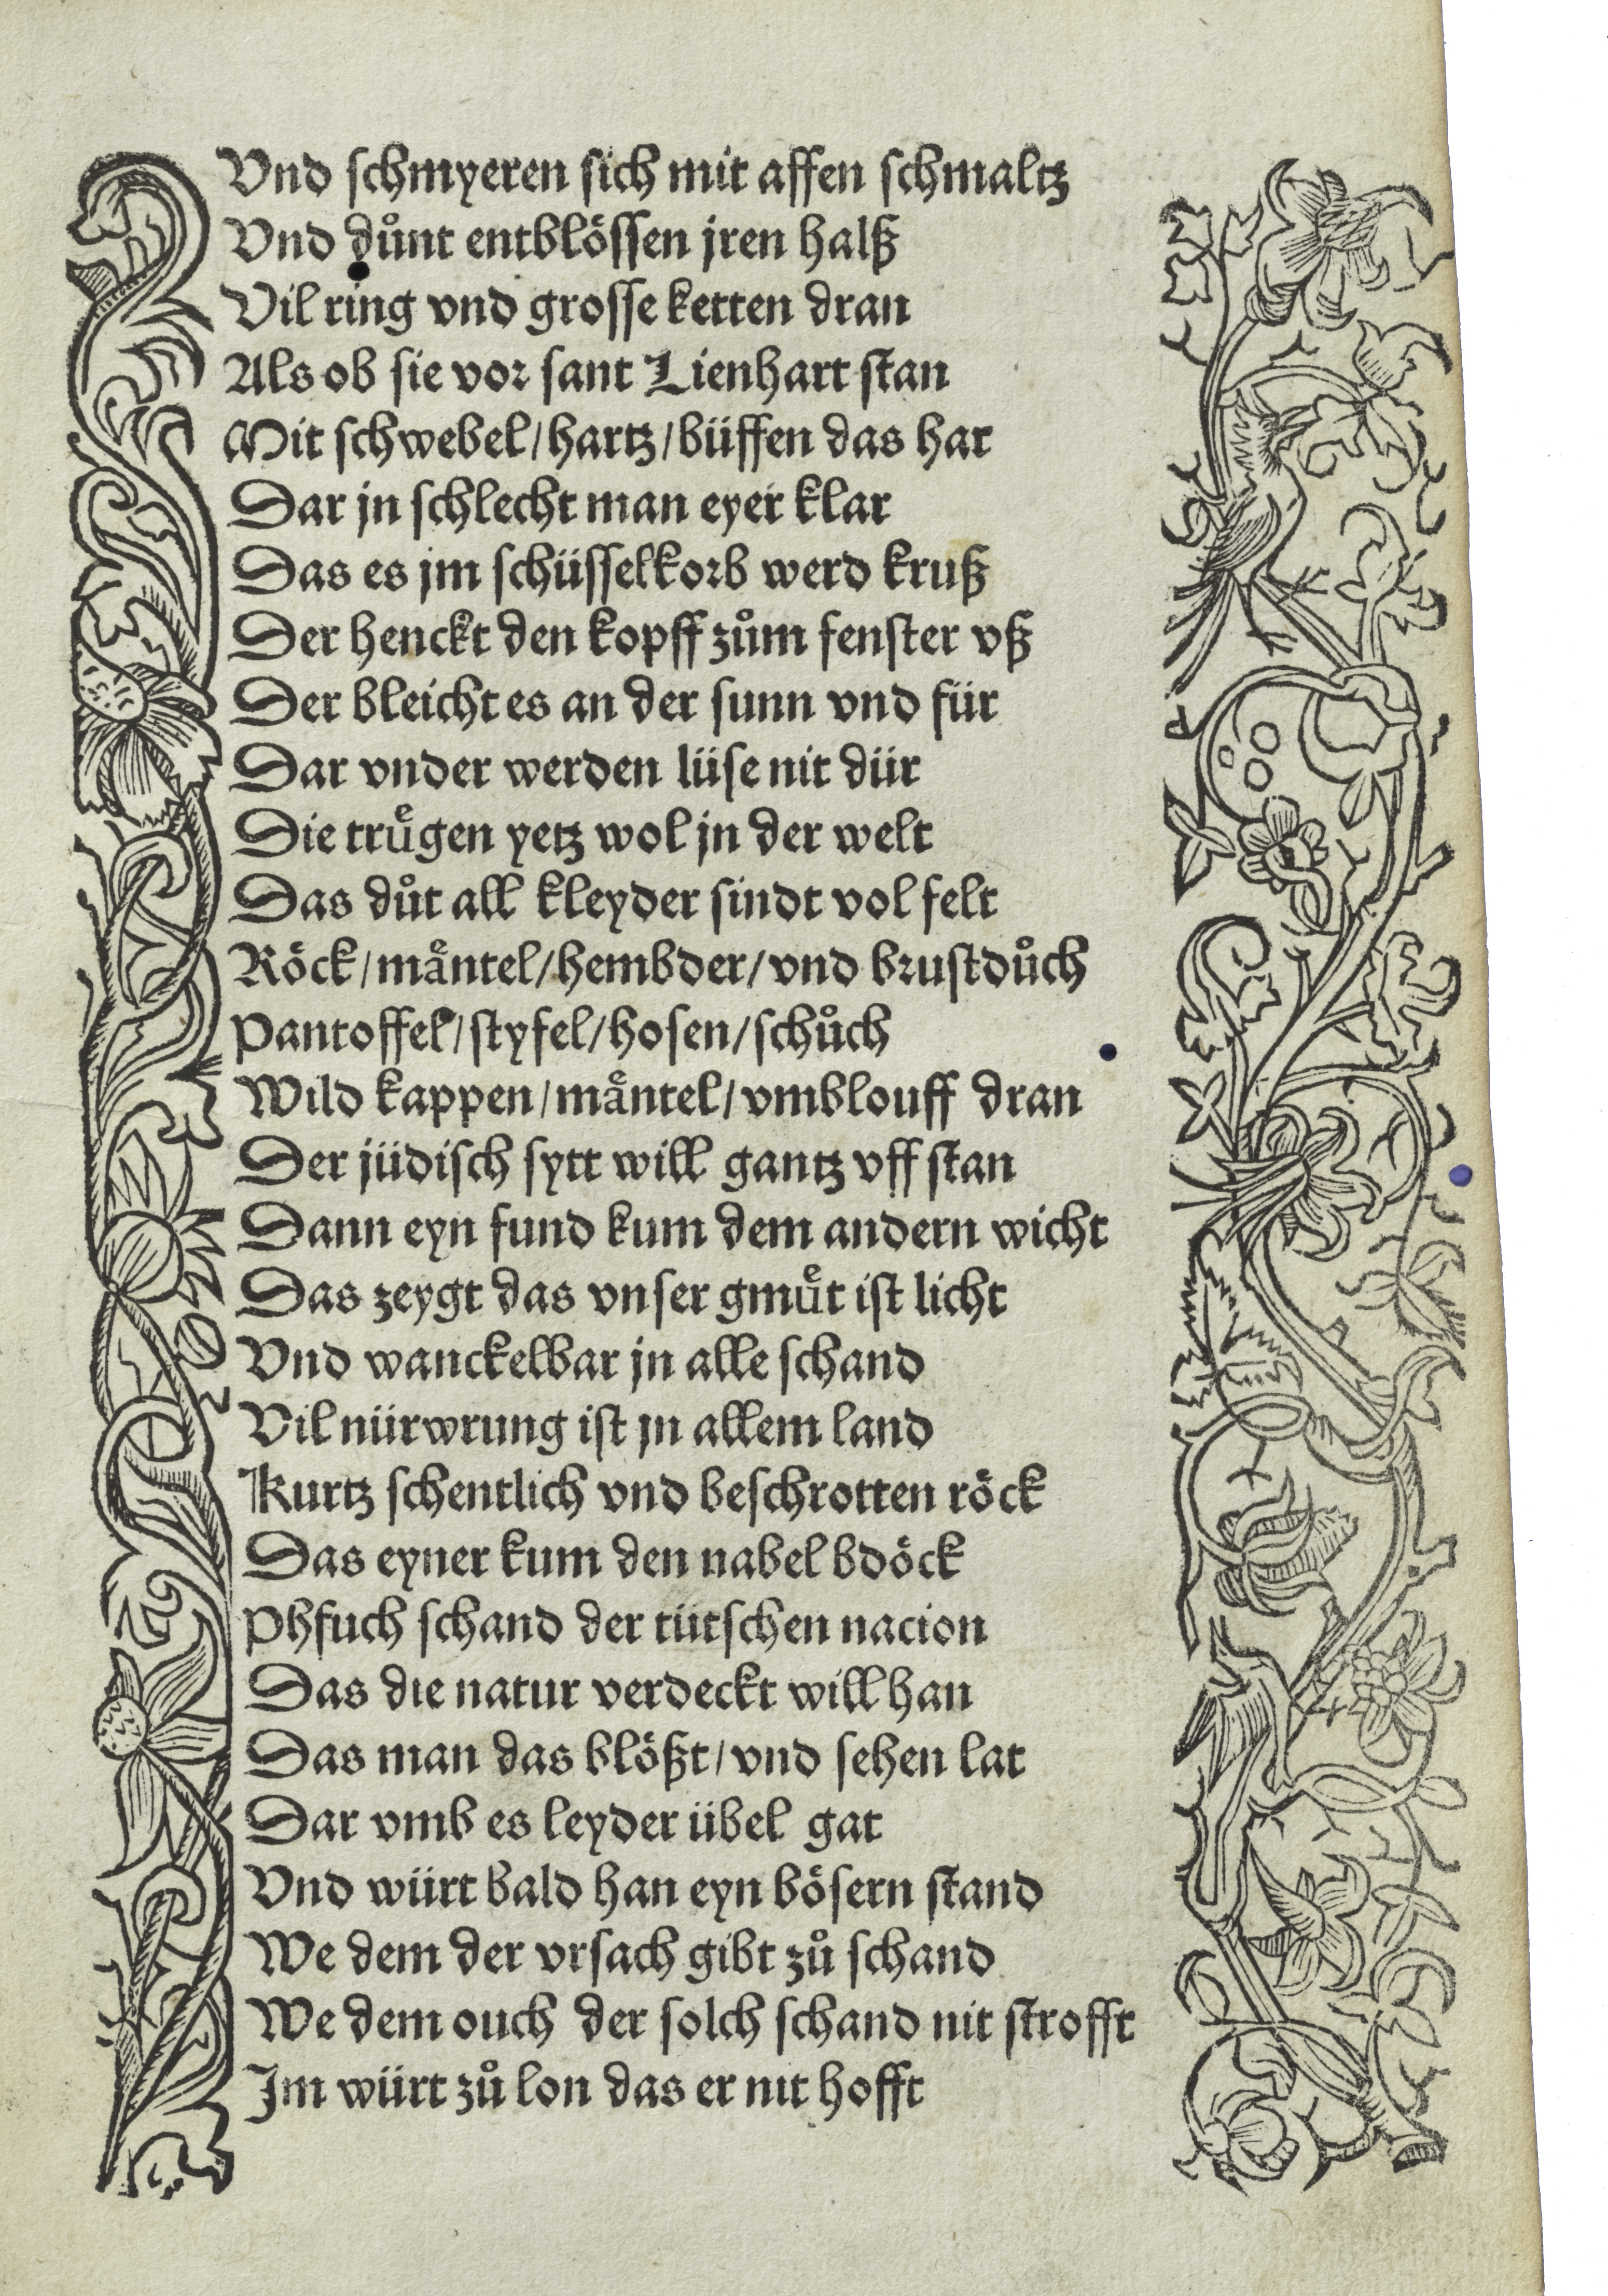 Vnd schmyeren sich mit affen schmaltz
Vnd důnt entblössen jren halß
Vil ring vnd grosse ketten dran
Als ob sie vor sant Lienhart stan
Mit schwebel/hartz/büffen das har
Dar jn schlecht man eyer klar
Das es jm schüsselkorb werd kruß
Der henckt den kopff zům fenster vß
Der bleicht es an der sunn vnd für
Dar vnder werden lüse nit dür
Die truͤgen yetz wol jn der welt
Das důt all kleyder sindt vol felt
Röck/maͤntel/hembder/vnd brustdůch
Pantoffel/styfel/hosen/schůch
Wild kappen/maͤntel/vmblouff dran
Der jüdisch sytt will gantz vff stan
Dann eyn fund kum dem andern wicht
Das zeygt das vnser gmuͤt ist licht
Vnd wanckelbar jn alle schand
Vil nürwrung ist jn allem land
Kurtz schentlich vnd beschrotten röck
Das eyner kum den nabel bdöck
Phfuch schand der tütschen nacion
Das die natur verdeckt will han
Das man das blößt/vnd sehen lat
Dar vmb es leyder übel gat
Vnd würt bald han eyn bösern stand
We dem der vrsach gibt zů schand
We dem ouch der solch schand nit strofft
Jm würt zů lon das er nit hofft